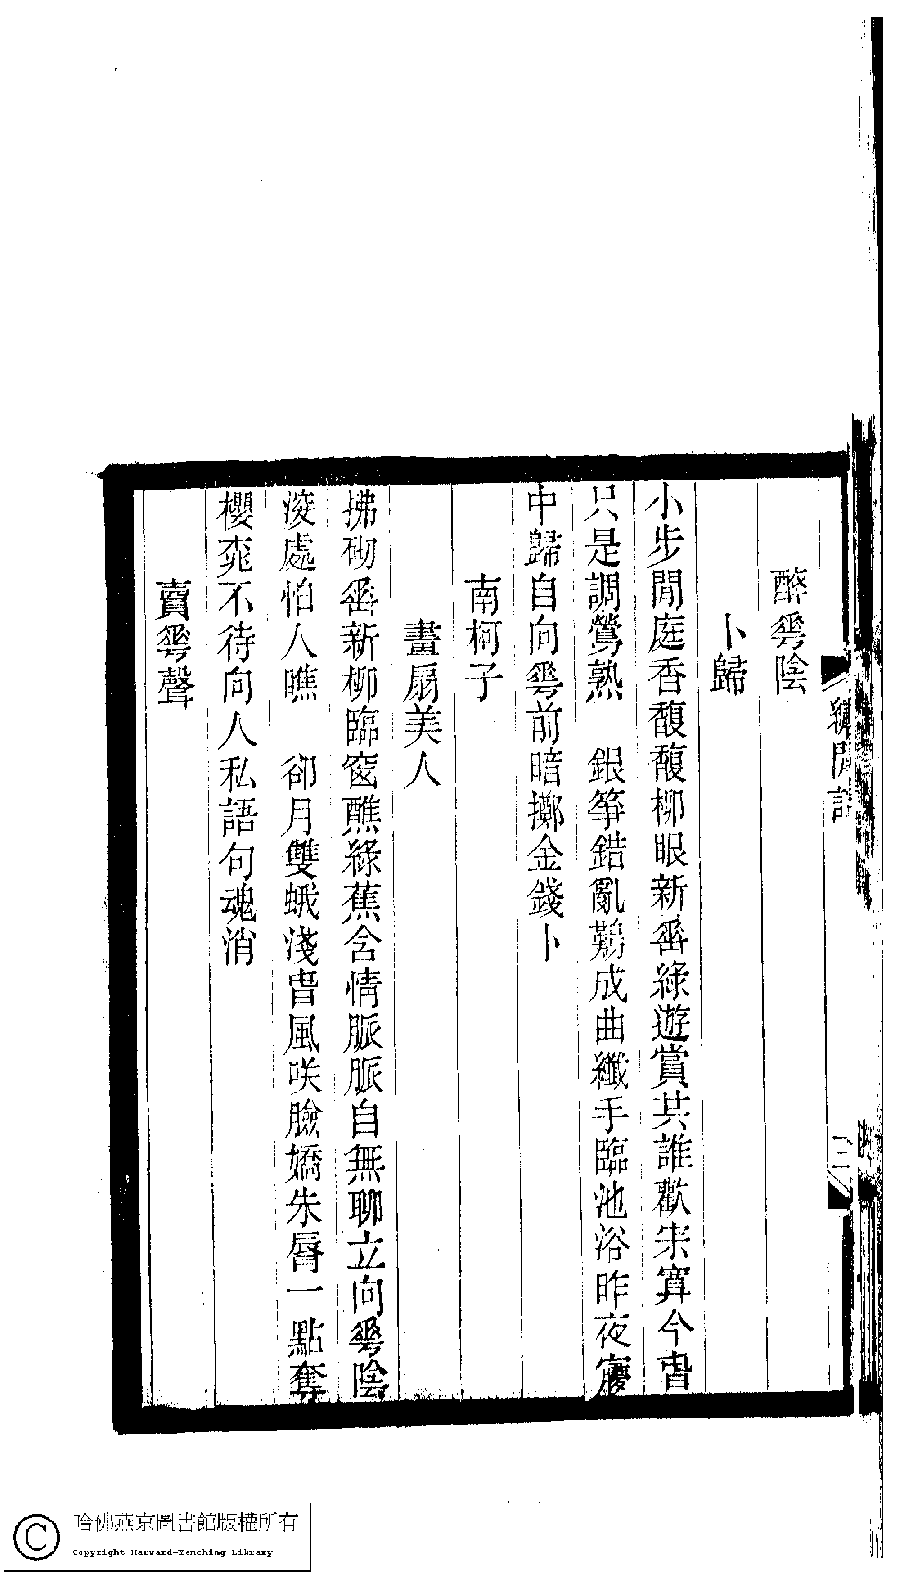 醉蕚陰
卜歸
小步閒庭香馥馥栁眼新𡍮綠遊賞共誰歡寀寘今𣅀
只是調鶯熟　銀筝錯亂鷄成曲纖手臨池浴昨夜㝱
中歸自向蕚前暗擲金錢卜
南柯子
畫扇美人
拂砌𡍮新柳臨窗醮綠蕉含情脈脈自無聊立向蕚陰
湥處怕人瞧　郤月雙蛾淺𣅀風咲臉嬌朱脣一點奪
櫻桃不待向人私語句魂消
賣蕚聲
閒詞
三
哈佛燕京圖書館版權所有
Copyright Harvard-Yenching Library